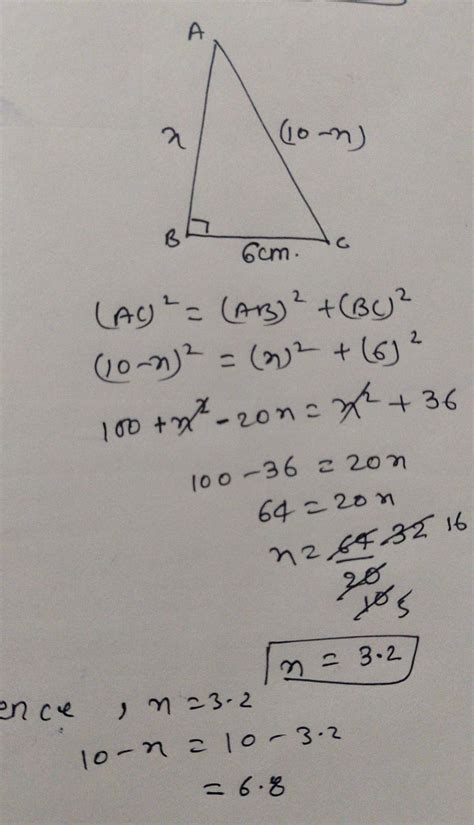 A
x (10-x)
B 6cm. C
(AC)² = (AB)² + (BC)²
(10-x)² = (x)² + (6)²
100 + x² - 20x = x² + 36
100 - 36 = 20x
64 = 20x
x = 64 32 16
20
10 5
x = 3.2
ence, x = 3.2
10 - x = 10 - 3.2
= 6.8